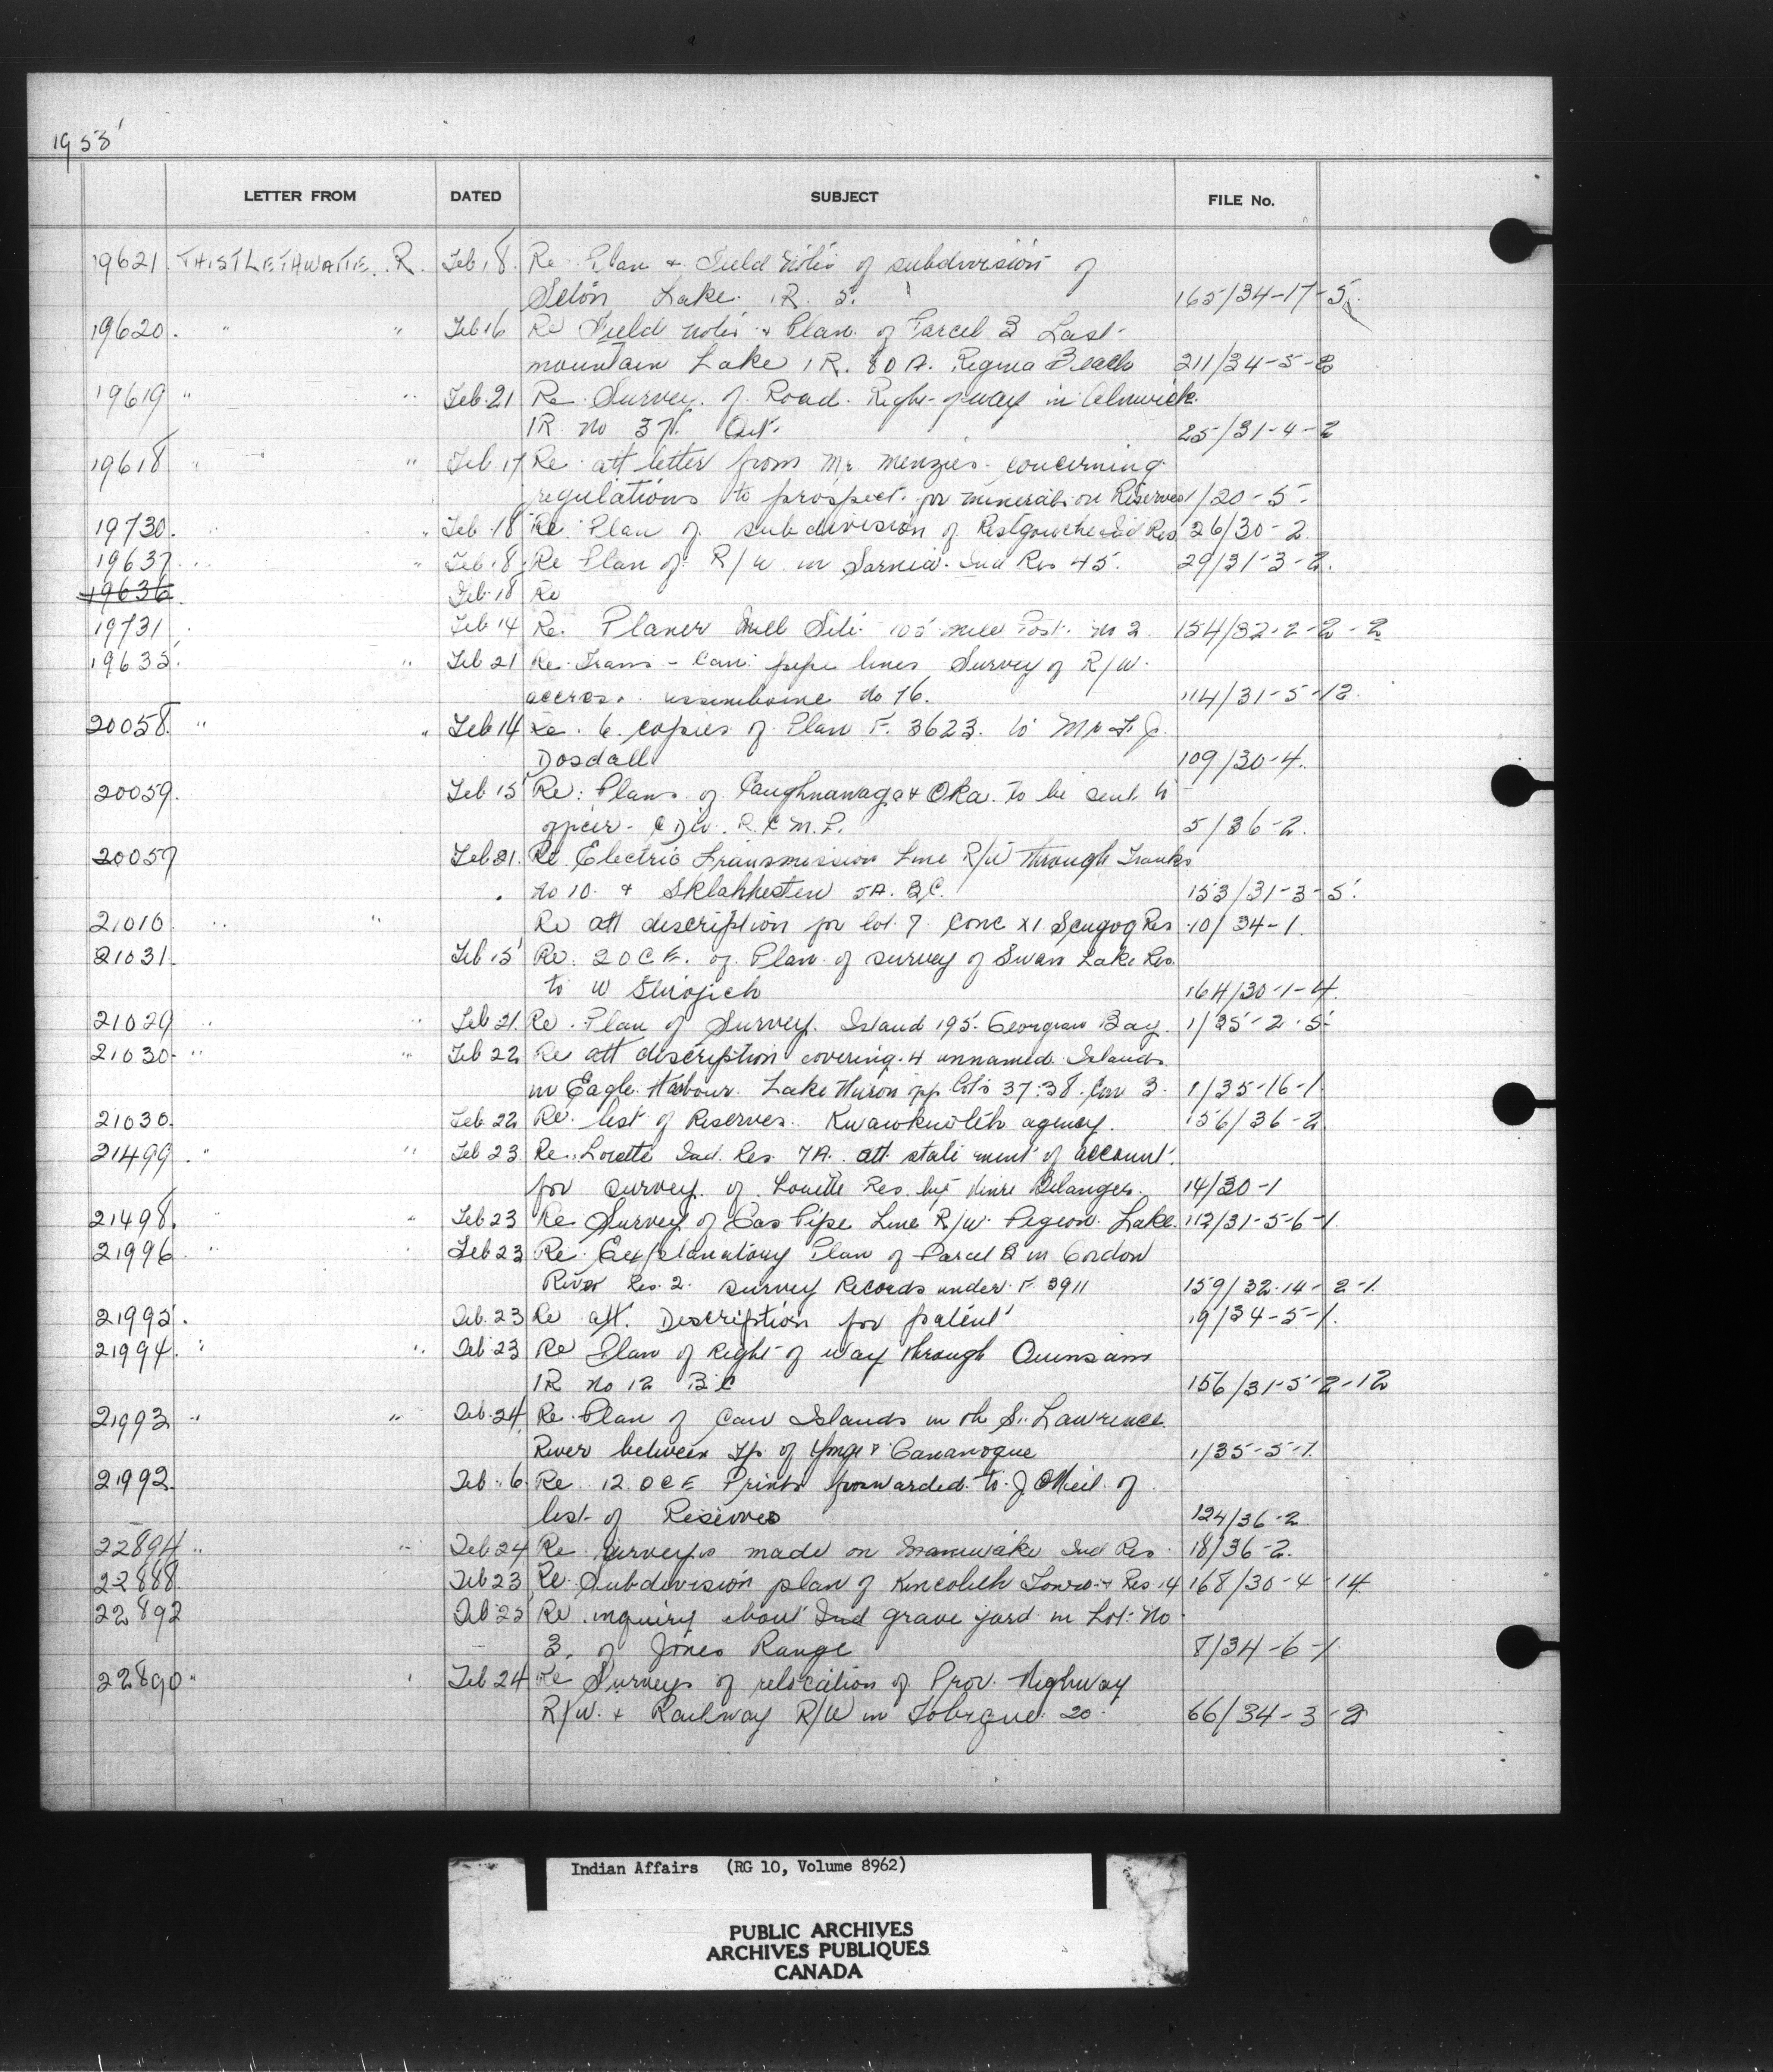 1955
LETTER FROM DATED SUBJECT FILE No.
19621 THISTLETHWAITE. R. Feb 18. Re Plan & Field notes of subdivision of
Seton Lake IR. 5. 165/34-17-5
19620. " " Feb 16 Re Field notes & Plan of Parcel B Last
mountain Lake IR. 80 A. Regina Beach 211/34-5-8
19619 " " Feb. 21 Re Survey of Road Right-of way in Alnwick
IR no 37. Ont. 25/31-4-2
19618 " " Feb. 17 Re att letter from Mr Menzies concerning
regulations to prospect for minerals on Reserves 1/20-5-
19730. " " Feb 18 Re Plan of subdivision of Restigouche Ind Res 26/30-2
19637 " Feb. 18. Re Plan of R/W in Sarnia Ind Res 45. 29/31-3-2.
19636 Feb. 18 Re
19731 Feb 14 Re. Planer Mill Site 105 mile Post no 2 154/32-2-2-2
19635 " Feb 21 Re Trans-Can pipe lines Survey of R/W
accros. assiniboine no 76. 114/31-5-12
20058. " " Feb 14 Re. 6 copies of Plan F. 3623. to Mr F. J.
Dosdall 109/30-4.
20059. Feb 15 Re: Plans of Caughnawaga & Oka to be sent to
officer - C Div. R.C.M.P. 5/36-2.
20057 Feb 21. Re Electric Transmission Line R/W through Tranks
no 10 & Sklahhesten 5A. B.C. 153/31-3-5.
21010 " " Re att description for lot 7 conc XI Scugog Res 10/34-1.
21031 Feb 15 Re. 20 C.E. of Plan of survey of Swan Lake Res.
to W 164/30-1-4.
21029 " " Feb 21. Re. Plan of Survey. Island 195. Georgian Bay. 1/35-2-5-
21030- " " Feb 22 Re att description covering 4 unnamed Islands
in Eagle Harbour Lake Huron opp lots 37.38. Con 3. 1/35-16-1
21030. Feb 22 Re list of Reserves Kwawkewlth agency. 156/36-2
21499 " " Feb 23 Re. Lorette Ind. Res 7A. att statement of account
for survey of Lorette Res. by Henri Belanger. 14/30-1
21498. " " Feb 23 Re Survey of Gas Pipe Line R/W Pigeon Lake 112/31-5-6-1.
21996 " Feb 23 Re Explanatory Plan of Parcel B in Gordon
River Res. 2. survey Records under F. 3911 159/32-14-2-1.
21995. Feb. 23 Re att. Description for patent 19/34-5-1.
21994. " " Feb 23 Re Plan of Right of way through Quinsam
IR no 12 BC 156/31-5-2-12
21993 " " Feb. 24 Re Plan of Can Islands in the St. Lawrence
River between Tp. of Yonge & Gananoque 1/35-5-1.
21992. Feb. 6. Re 12 OCE Prints forwarded to J. O'Neil of
list of Reserves 124/36-2
22894 " " Feb 24 Re surveys made on Maniwaki Ind Res 18/36-2.
22888 Feb 23 Re Subdivision plan of Kincolith Town Res 14 168/30-4-14
22892 Feb 25 Re inquiry about Ind grave yard in Lot No
3. of Jones Range 8/34-6-1
22890 " Feb 24 Re Surveys of relocation of Prov. Highway
R/W. & Railway R/W in Tobique 20 66/34-3-2
Indian Affairs (RG 10, Volume 8962)
PUBLIC ARCHIVES
ARCHIVES PUBLIQUES
CANADA